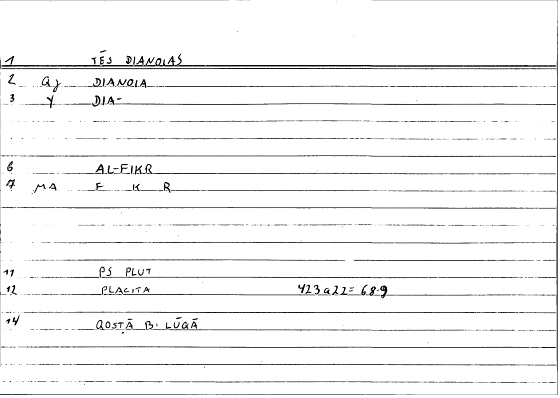 1 TĒS DIANOIAS
2 Qj DIANOIA
3 Y DIA-
6 AL-FIKR
7 MA F K R
11 PS PLUT
12 PLACITA 423a22= 68.9
14 QOSṬĀ B. LŪQĀ